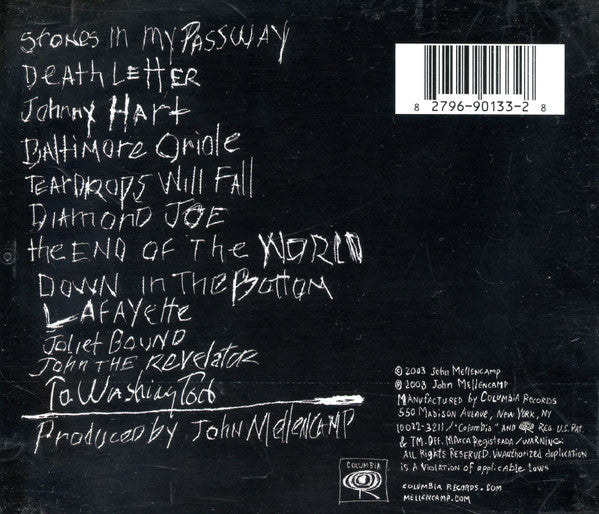 Stones In my PASSWAY
DeathLetter
Johnny Hart
Baltimore Oriole
TEARDROPS Will Fall
DIAMOND JOE
the END OF The WORLD
DOWN in The Bottom
LAFAYette
Joliet BOUND
John THE Revelator
To
Produced by John Mellencamp
8 2796-90133-2 8
© 2003 John Mellencamp
℗ 2003 John Mellencamp
Manufactured by Columbia Records
550 Madison Avenue, New York, NY
10022-3211/"Columbia" and Reg. U.S. Pat.
& TM. Off. Marca Registrada/Warning:
All Rights Reserved. Unauthorized duplication
is a violation of applicable laws
COLUMBIA
COLUMBIA RECORDS.COM
MELLENCAMP.COM